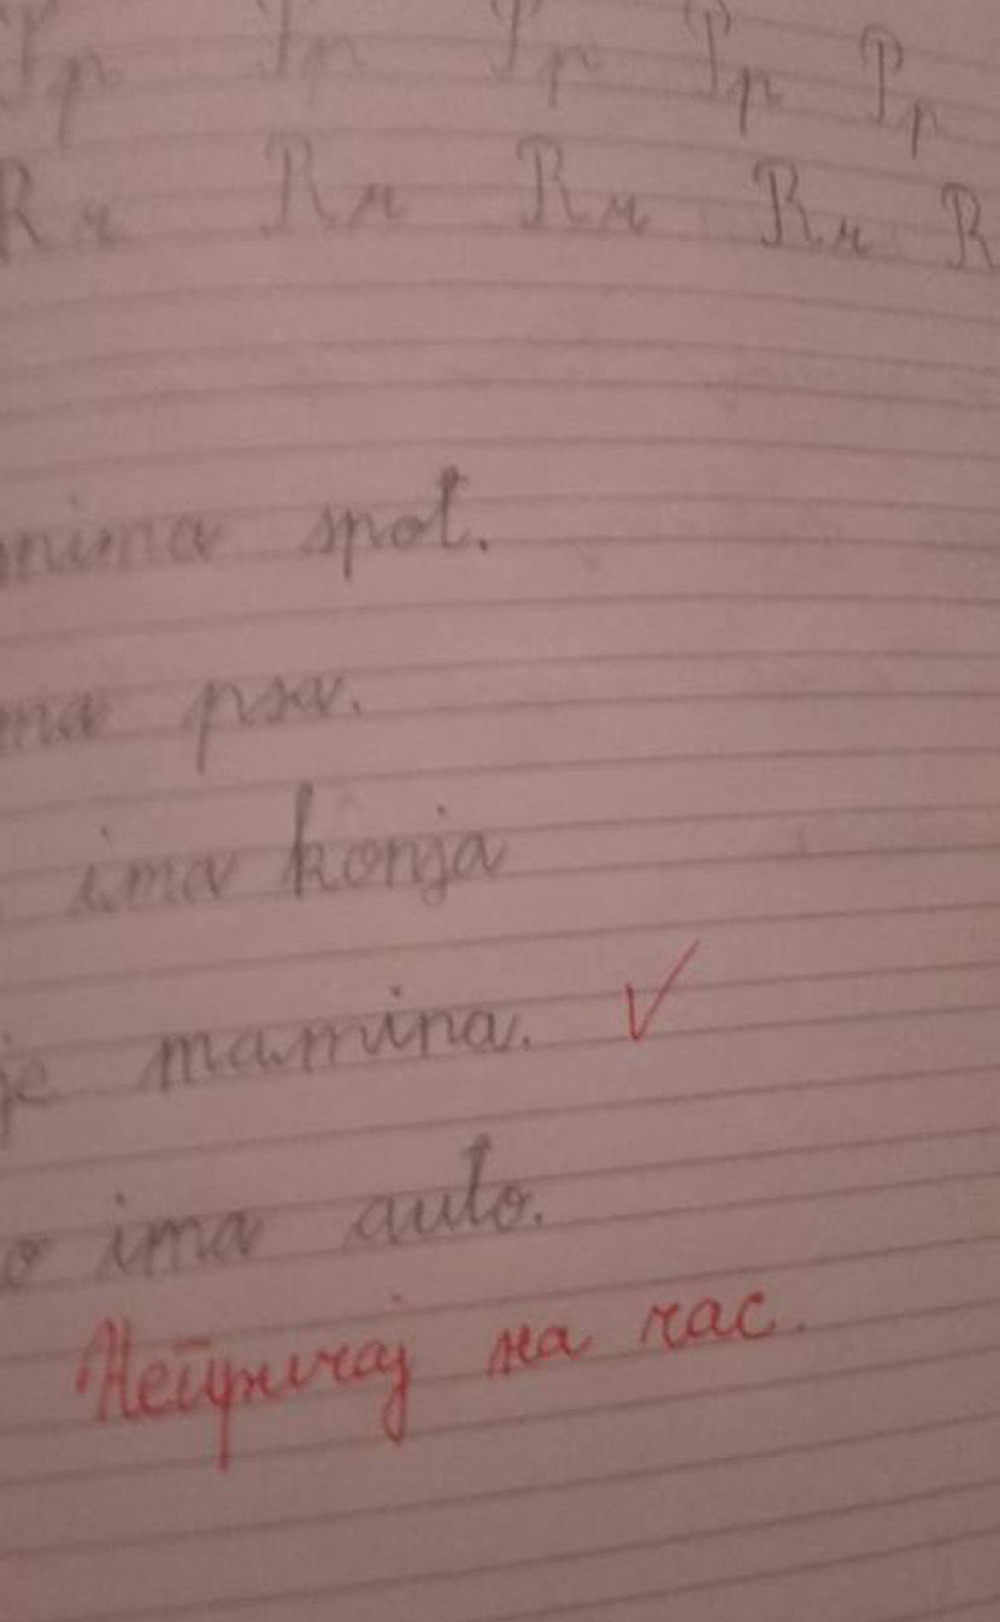 Pp Pp Pp Pp Pp
Rr Rr Rr Rr R
spot.
psa.
ima konja
je mamina. ✓
ima auto.
на час.